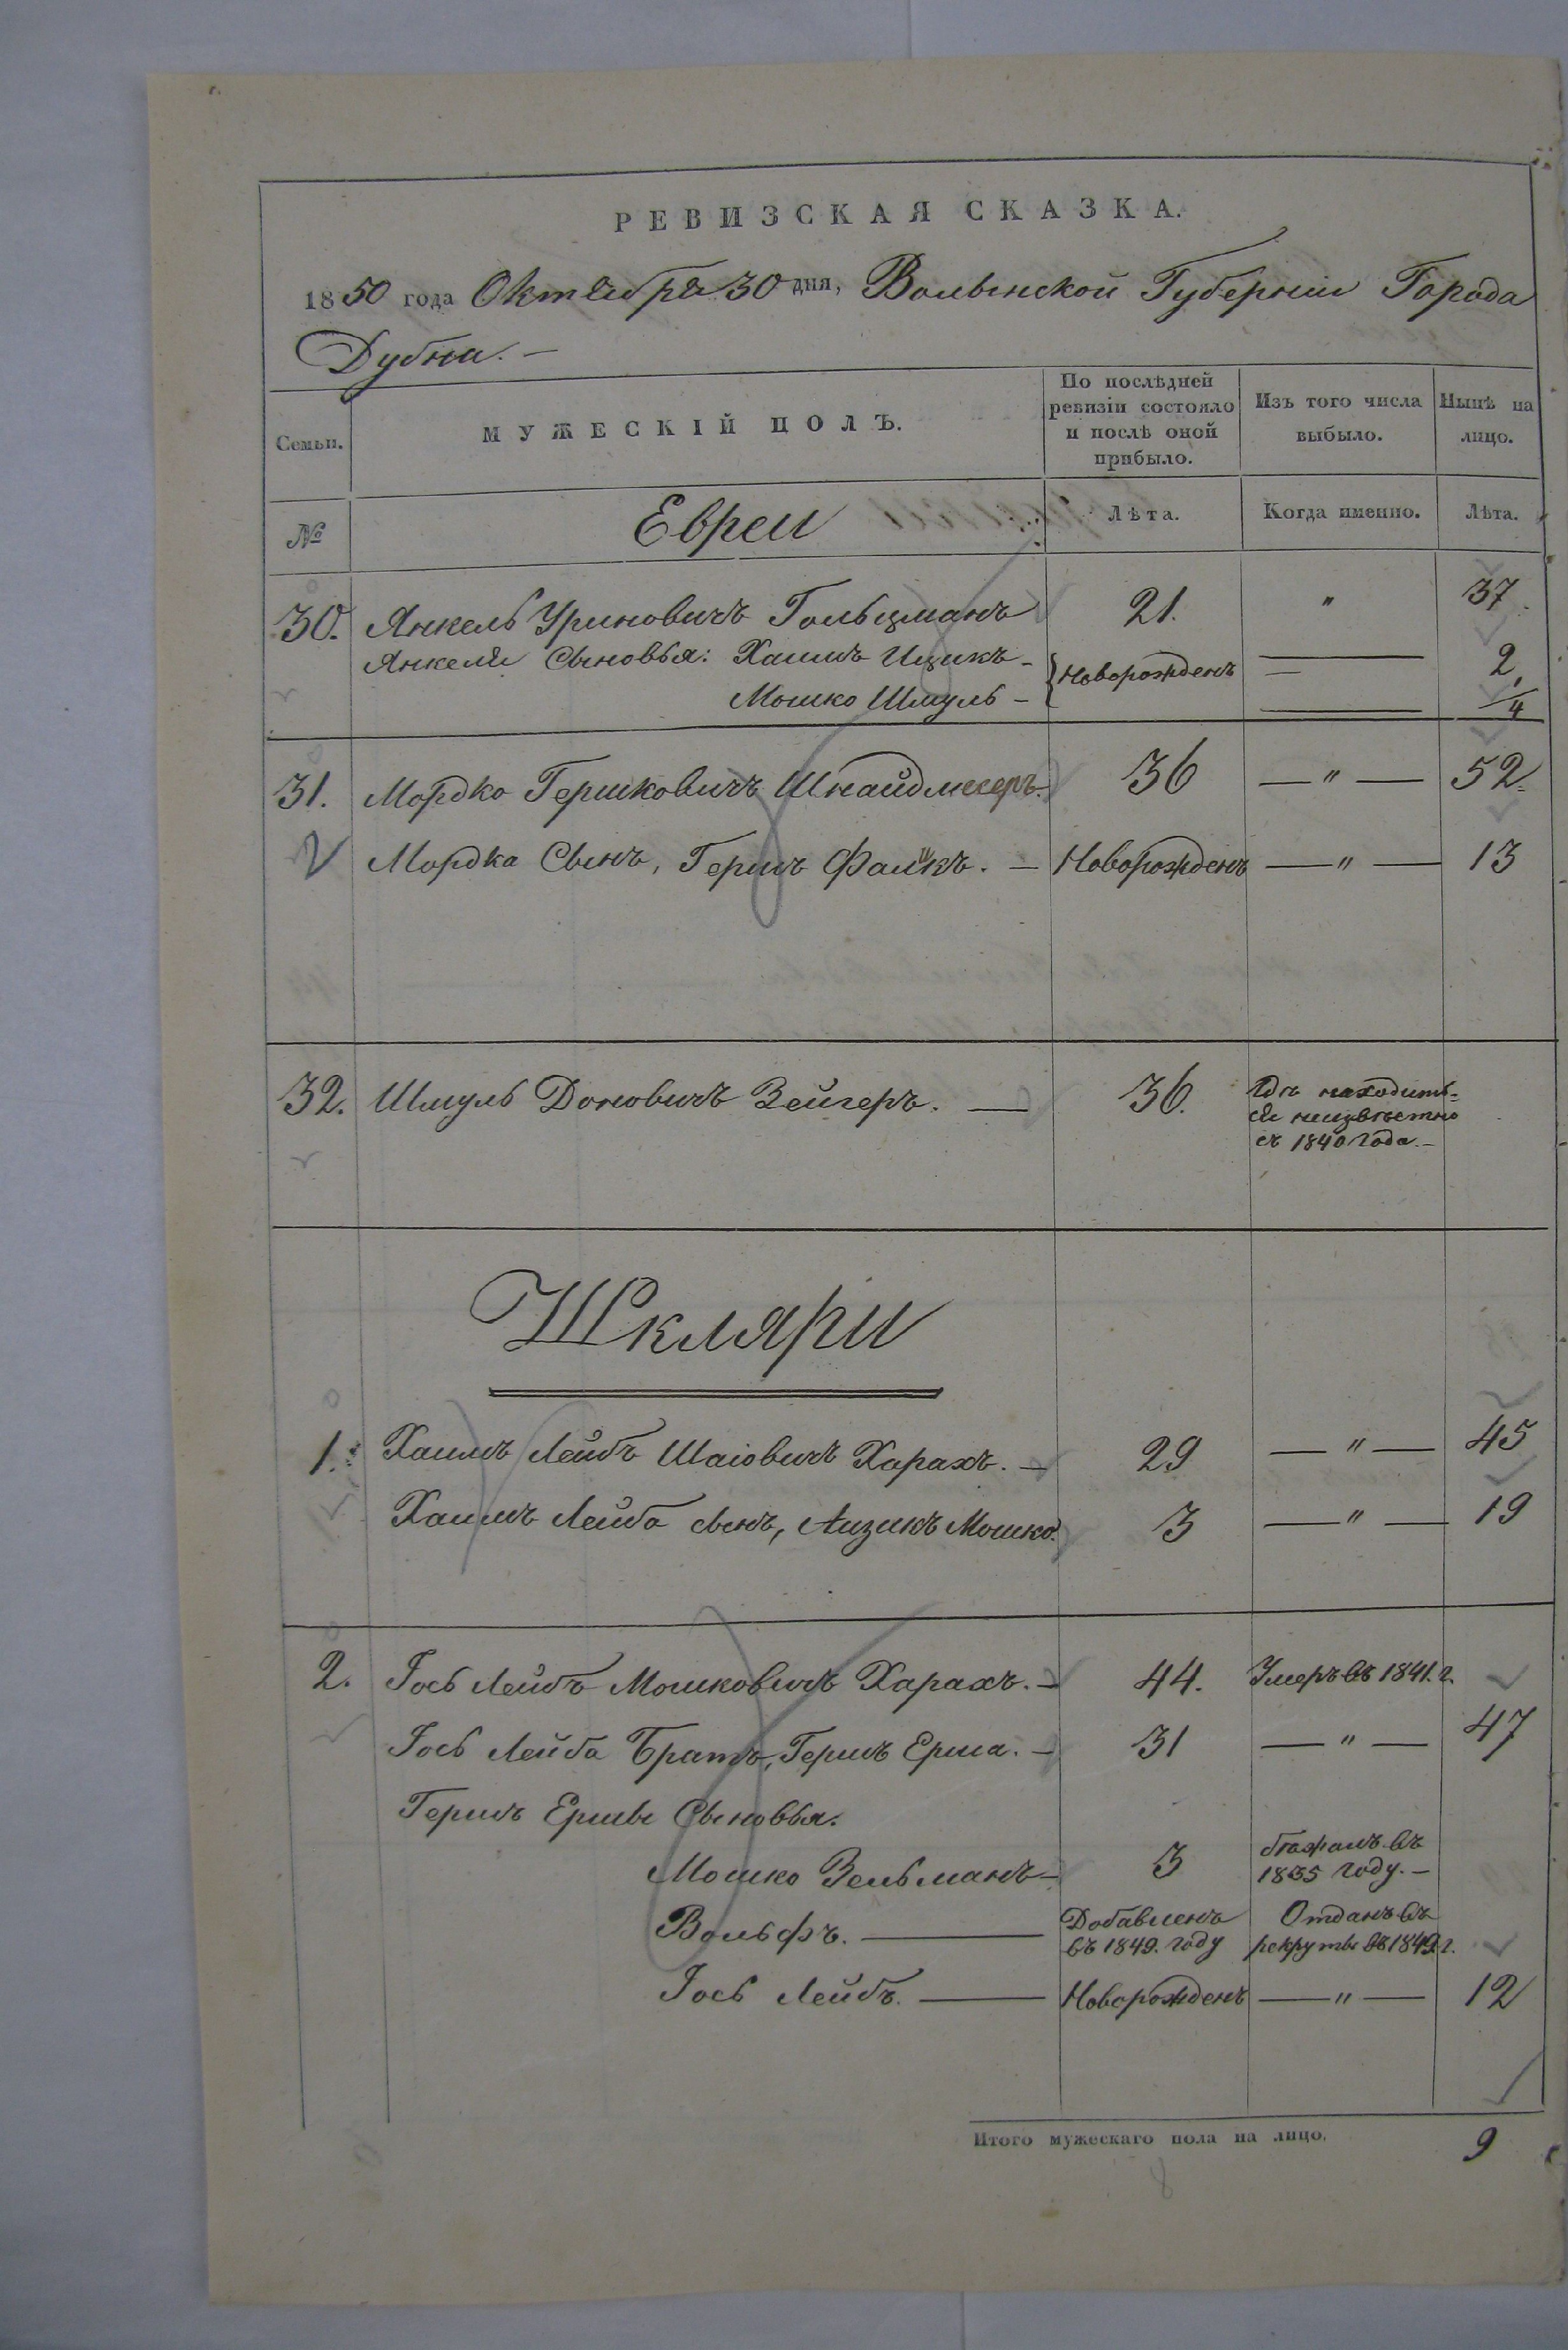 РЕВИЗСКАЯ СКАЗКА.
1850 года Октября 30 дня, Волынской Губернии Города
Дубна. —
Семьи. МУЖЕСКІЙ ПОЛЪ. По послѣдней ревизіи состояло и послѣ оной прибыло. Изъ того числа выбыло. Нынѣ на лицо.
№ Евреи Лѣта. Когда именно. Лѣта.
30. Янкель Уриновичъ Гольцманъ 21. " 37.
Янкеля Сыновья: Хаимъ Ицикъ — Новорожденъ — 2
Мошко Шмуль — — 1/4
31. Мордко Гершковичъ Шнайдмесеръ. 36 — " — 52
Мордка Сынъ, Гершъ Фаликъ. — Новорожденъ — " — 13
32. Шмуль Доновичъ Зейгеръ. — 36. Гдѣ находить-
ся неизвѣстно
съ 1840 года. —
Шкляри
1. Хаимъ Лейбъ Шаіовичъ Харахъ. — 29 — " — 45
Хаимъ Лейба сынъ, Аизикъ Мошко. 3 — " — 19
2. Іось Лейбъ Мошковичъ Харахъ. — 44. Умеръ въ 1841. г.
Іось Лейба Братъ, Гершъ Ерша. — 31 — " — 47
Гершъ Ершы Сыновья.
Мошко Зельманъ — 3 бѣжалъ въ
1835 году. —
Вольфъ. — Добавленъ Отданъ въ
въ 1849. году рекруты въ 1849 г.
Іось Лейбъ. — Новорожденъ — " — 12
Итого мужескаго пола на лицо. 9